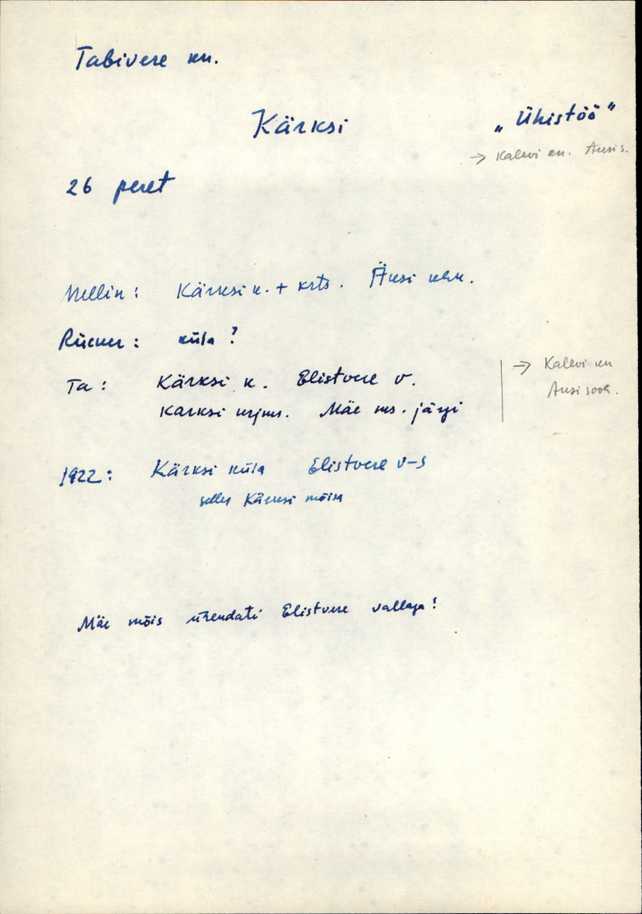 Tabivere kn.
Kärksi
„Ühistöö"
→ Kalevi kn. Ausi s.
26 peret
Mellin: Kärksi k. + krts.
Rücker: küla?
Ta: Kärksi k. Elistvere v.
Karksi krjms. Mäe ms. järgi
→ Kalevi kn
Ausi sook.
1922: Kärksi küla Elistvere v-s
selles Kärksi mõisa
Mäe mõis ühendati Elistvere vallaga!